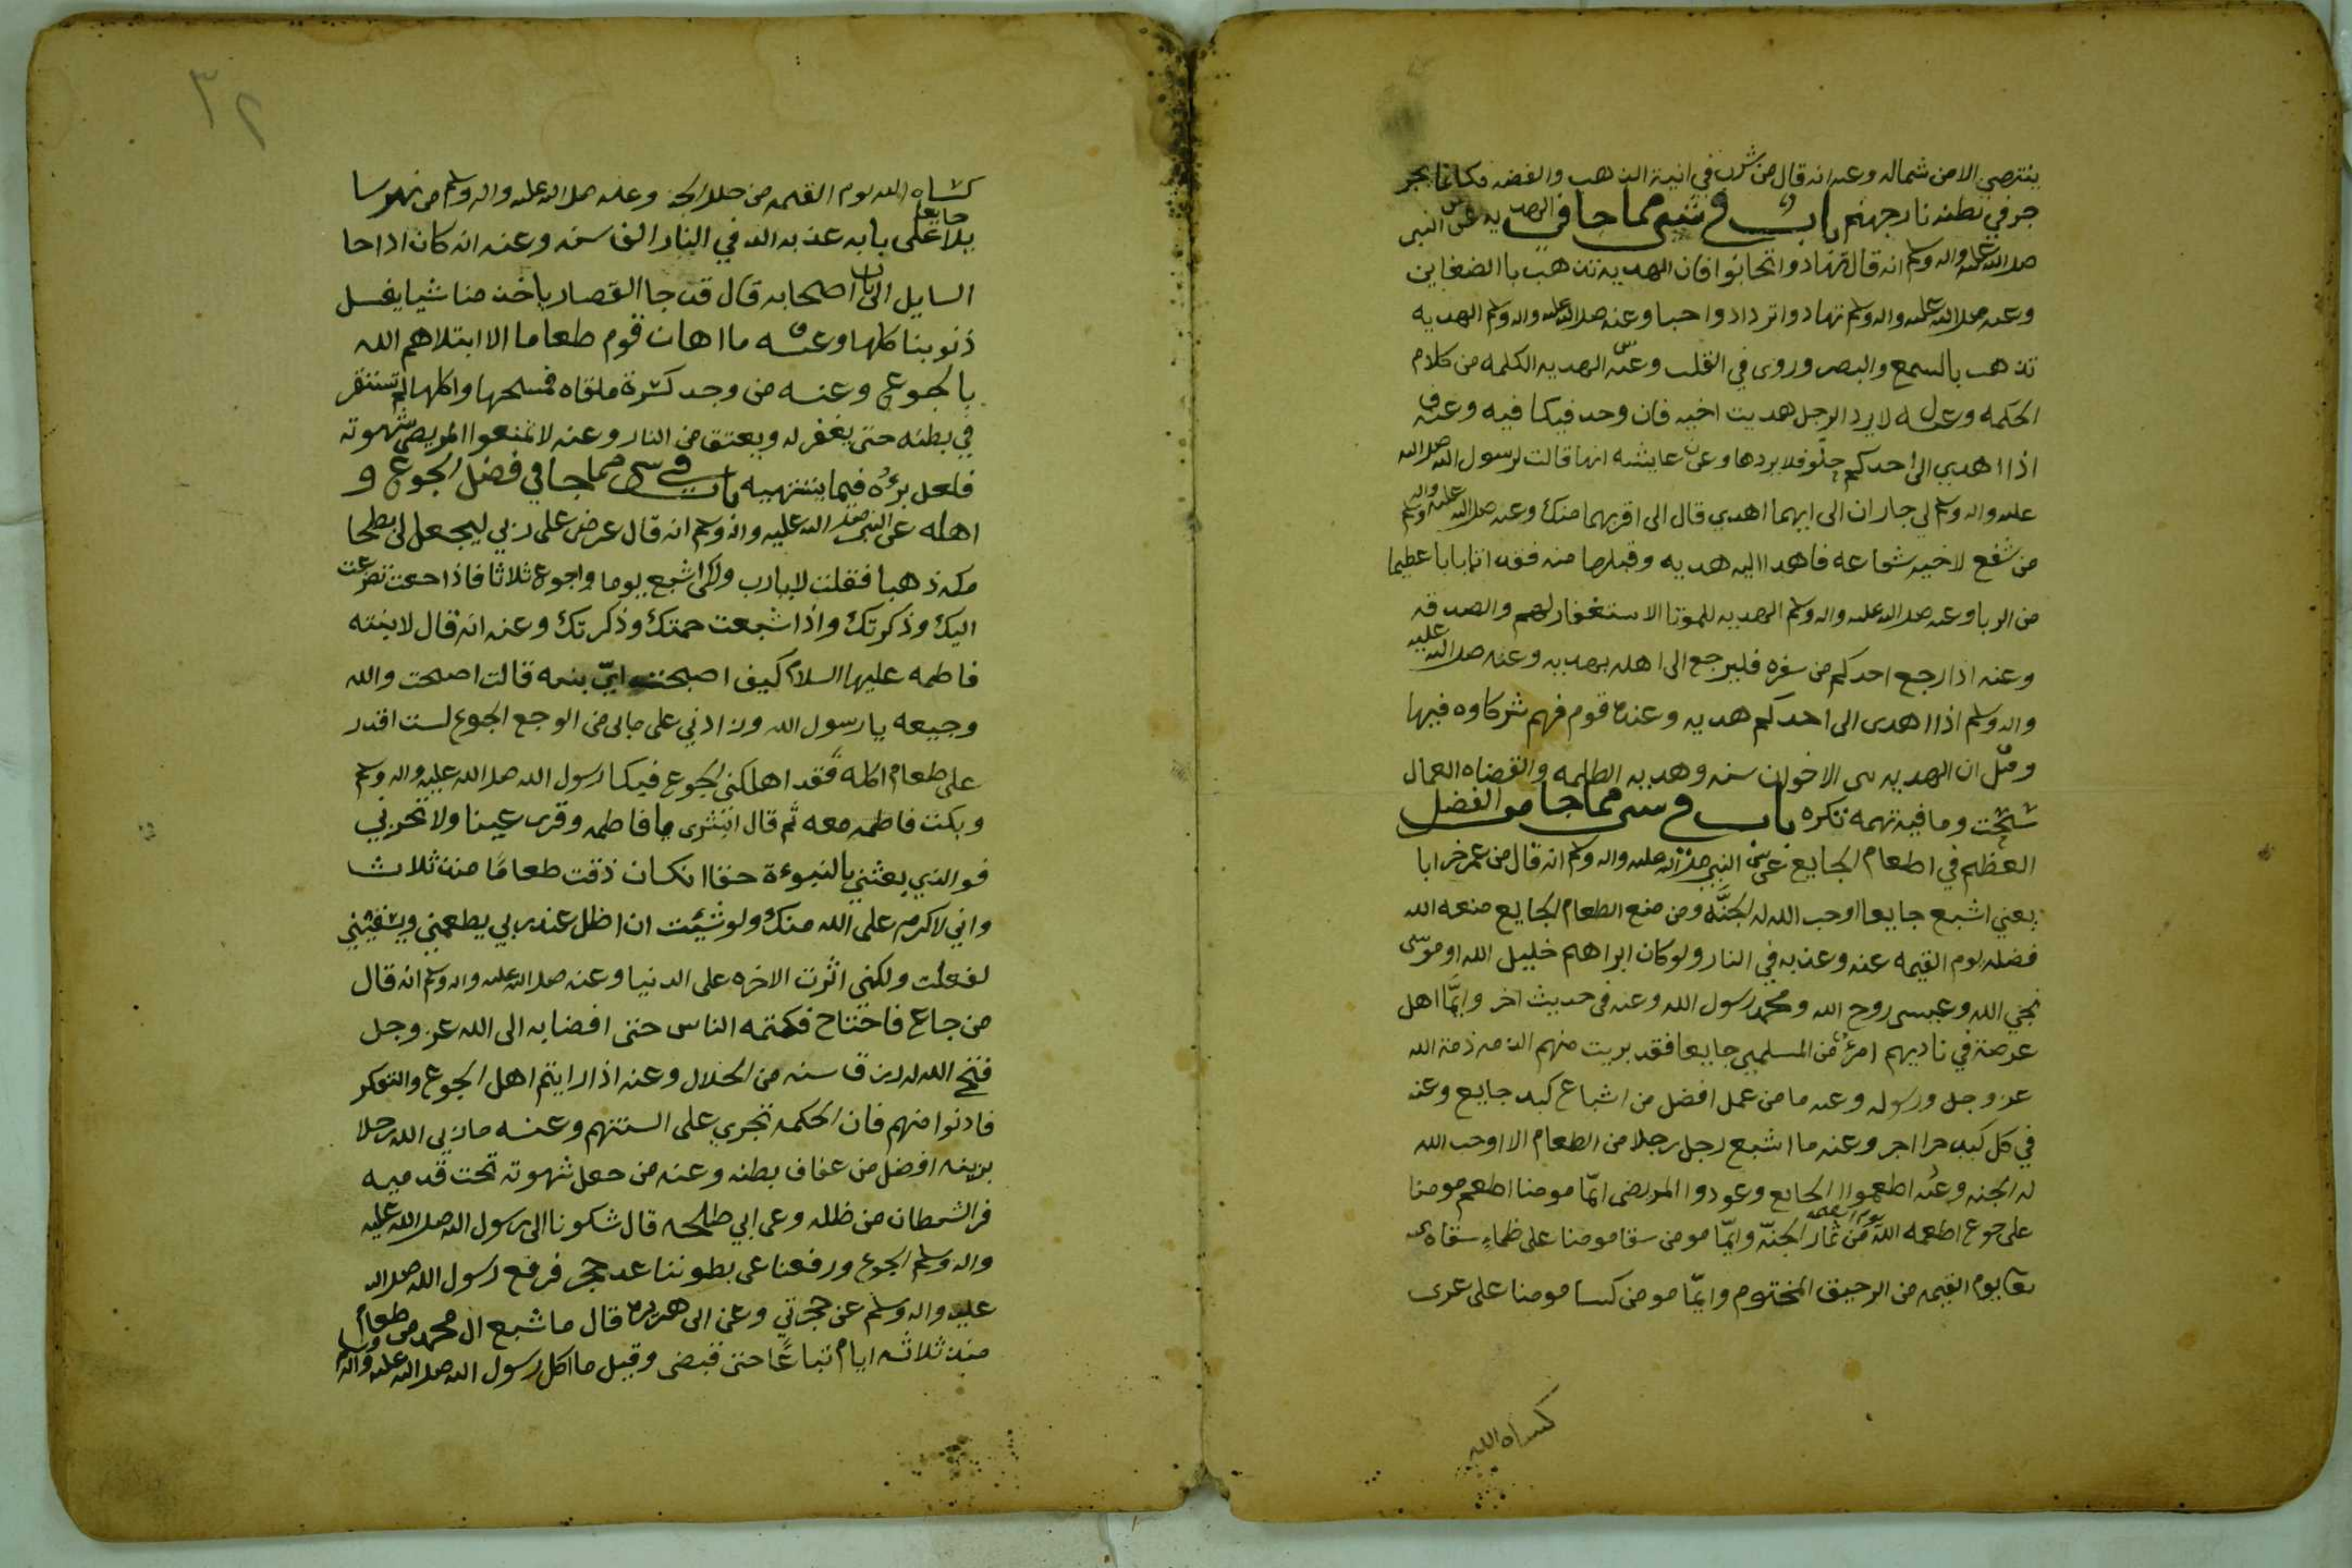 ينتصي الا من شماله وعنه انه قال من شرب في انية الذهب والفضه فكانما يجر
جر في بطنه نار جهنم باب في شي مما جا في الهديه عن النبي
صلا الله عليه واله وسلم انه قال تهادوا تحابوا فان الهديه تذهب با الضغاين
وعنه صلا الله عليه واله وسلم تهادوا تزدادوا حبا وعنه صلا الله عليه واله وسلم الهديه
تذهب بالسمع والبصر وروى في القلب وعنه الهديه الكلمه من كلام
الحكمه وعنه لا يرد الرجل هديت اخيه فان وجد فيكافيه وعنه
اذا اهدي الى احدكم حلو فلا يردها وعن عايشه انها قالت لرسول الله صلا الله
عليه واله وسلم لي جاران الى ايهما اهدي قال الى اقربهما منك وعنه صلا الله عليه واله وسلم
من شفع لاخيه شفاعه فاهدا اليه هديه وقبلها منه فقد اتا بابا عظيما
من الربا وعنه صلا الله عليه واله وسلم الهديه للموتا الاستغفار لهم والصدقه
وعنه اذا رجع احدكم من سفره فليرجع الى اهله بهديه وعنه صلا الله عليه
واله وسلم اذا اهدى الى احدكم هديه وعنده قوم فهم شركاوه فيها
وقيل ان الهديه الاخوان سنه وهديه الظلمه والقضاه العمال
سحت وما فيه تهمه تكره باب في شي مما جا من الفضل
العظيم في اطعام الجايع عن النبي صلا الله عليه واله وسلم انه قال من عمر خرابا
يعني اشبع جايعا اوجب الله له الجنه ومن منع الطعام الجايع منعه الله
فضله يوم القيمه عنه وعذبه في النار ولو كان ابراهيم خليل الله او موسى
نجي الله وعيسى روح الله ومحمد رسول الله وعنه في حديث اخر وايما اهل
عرصة في ناديهم امرء من المسلمين جايعا فقد بريت منهم الذمه ذمة الله
عز وجل ورسوله وعنه ما من عمل افضل من اشباع كبد جايع وعنه
في كل كبد حرا اجر وعنه ما اشبع رجل رجلا من الطعام الا اوجب الله
له الجنه وعنه اطعموا الجايع وعودوا المريض ايما مومنا اطعم مومنا
على جوع اطعمه الله يوم القيمه من ثمار الجنه وايما مومن سقا مومنا على ظماء سقاه
يوم القيمه من الرحيق المختوم وايما مومن كسا مومنا على عرى
كساه الله
كساه الله يوم القيمه من حلل الجنه وعنه صلا الله عليه واله وسلم من نهر سا
يلا جايعا على بابه عذبه الله في النار الف سنه وعنه انه كان اذا جا
السايل الى باب اصحابه قال قد جا القصار ياخذ منا شيا يغسل
ذنوبنا كلها وعنه ما اهان قوم طعاما الا ابتلاهم الله
بالجوع وعنه من وجد كسرة ملقاه فمسحها واكلها لم تستقر
في بطنه حتى يغفر له ويعتق من النار وعنه لا تمنعوا المريض شهوته
فلعل برءه فيما يشتهيه باب في شي مما جا في فضل الجوع و
اهله عن النبي صلا الله عليه واله وسلم انه قال عرض علي ربي ليجعل لي بطحا
مكه ذهبا فقلت لا يا رب ولكن اشبع يوما واجوع ثلاثا فاذا جعت تضرعت
اليك وذكرتك واذا شبعت حمدتك وذكرتك وعنه انه قال لابنته
فاطمه عليها السلام كيف اصبحت اي بنيه قالت اصبحت والله
وجيعه يا رسول الله وزادني على ما بي من الوجع الجوع لست اقدر
على طعام اكله فقد اهلكني الجوع فبكا رسول الله صلا الله عليه واله وسلم
وبكت فاطمه معه ثم قال ابشري يا فاطمه وقري عينا ولا تحزني
فوالذي بعثني بالنبوءة حقا ان كان ذقت طعاما منذ ثلاث
واني لاكرم على الله منك ولو شيئت ان اظل عند ربي يطعمني ويسقيني
لفعلت ولكني اثرت الاخره على الدنيا وعنه صلا الله عليه واله وسلم انه قال
من جاع فاحتاج فكتمه الناس حتى افضا به الى الله عز وجل
فتح الله له رزق سنه من الحلال وعنه اذا رايتم اهل الجوع والتفكر
فادنوا منهم فان الحكمه تجري على السنتهم وعنه ما زين الله رجلا
بزينه افضل من عفاف بطنه وعنه من جعل شهوته تحت قدميه
فر الشيطان من ظله وعن ابي طلحه قال شكونا الى رسول الله صلا الله عليه
واله وسلم الجوع ورفعنا عن بطوننا عن حجر فرفع رسول الله صلا الله
عليه واله وسلم عن حجرين وعن ابي هريره قال ما شبع ال محمد من طعام
منذ ثلاثه ايام تباعا حتى قبض وقيل ما اكل رسول الله صلا الله عليه واله وسلم